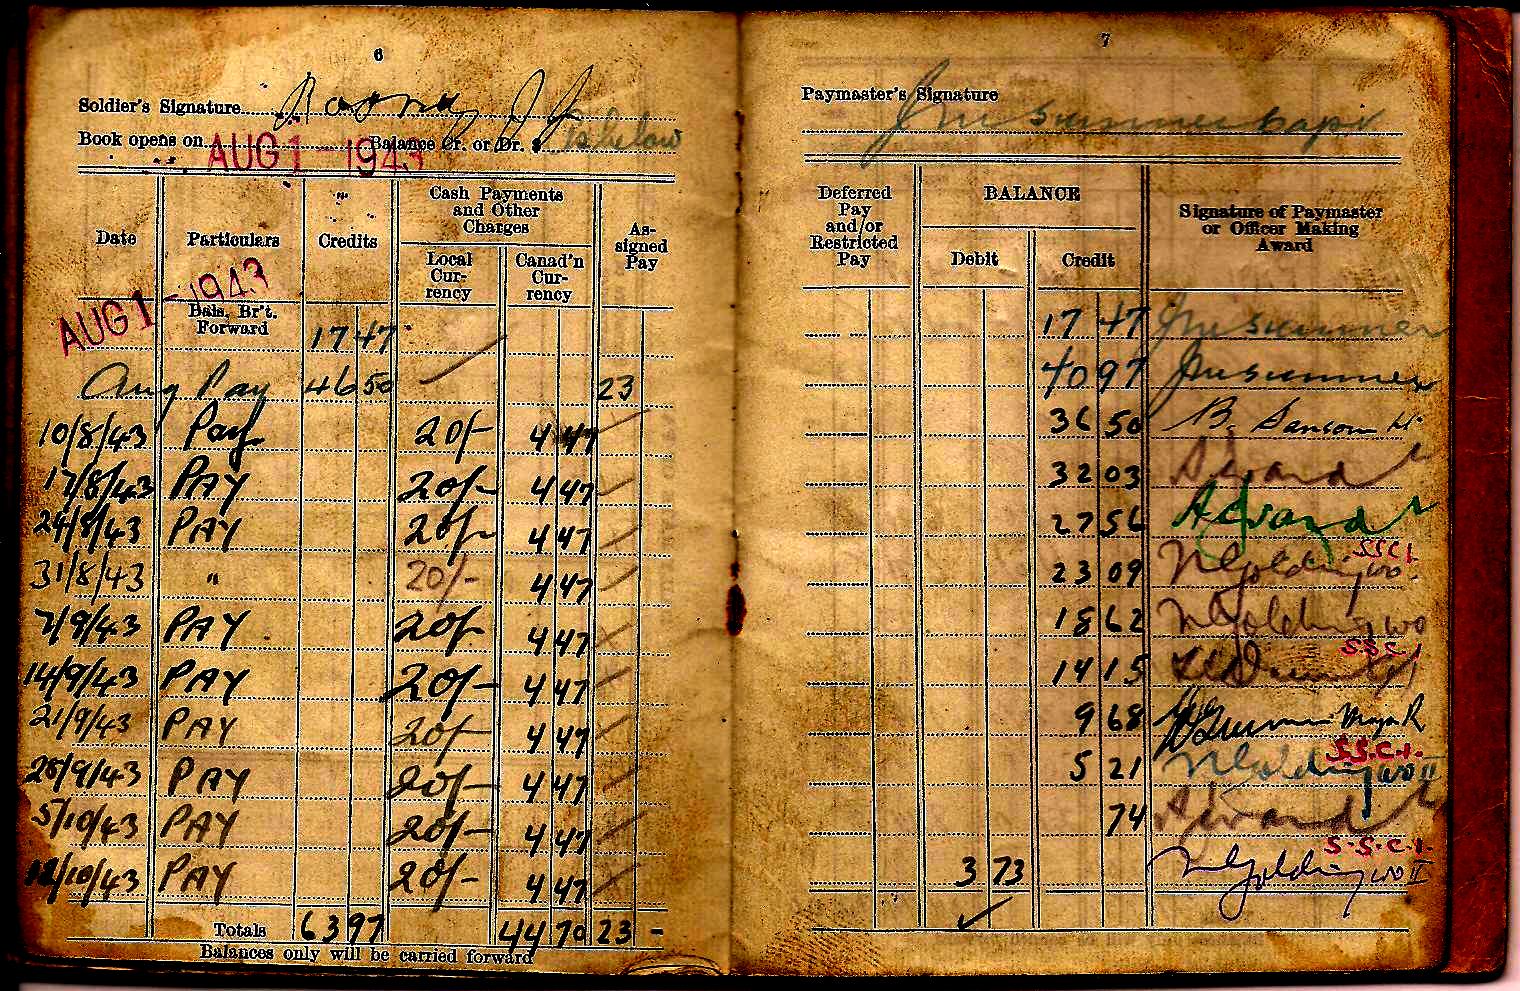 6
Soldier's Signature
Book opens on AUG 1 - 1943 Balance Cr. or Dr. $ as below
Date
Particulars
"
Credits
Cash Payments and Other Charges
Local Cur-rency
Canad'n Cur-rency
As-signed Pay
AUG 1 - 1943 Bals. Br't. Forward 17 47
Aug Pay 46 50 23
10/8/43 Pay 20/- 4 47
17/8/43 PAY 20/- 4 47
24/8/43 PAY 20/- 4 47
31/8/43 " 20/- 4 47
7/9/43 PAY 20/- 4 47
14/9/43 PAY 20/- 4 47
21/9/43 PAY 20/- 4 47
28/9/43 PAY 20/- 4 47
5/10/43 PAY 20/- 4 47
12/10/43 PAY 20/- 4 47
Totals 63 97 44 70 23 -
Balances only will be carried forward
7
Paymaster's Signature
Deferred Pay and/or Restricted Pay
BALANCE
Debit
Credit
Signature of Paymaster or Officer Making Award
17 47
40 97
36 50 B. Sansom Lt
32 03
27 56
23 09 Golding WO S.S.C.I.
18 62 Golding WO
14 15 S.S.C.I
9 68 Major
5 21 Golding WO II S.S.C.I.
74
3 73 Golding WO II S.S.C.I.